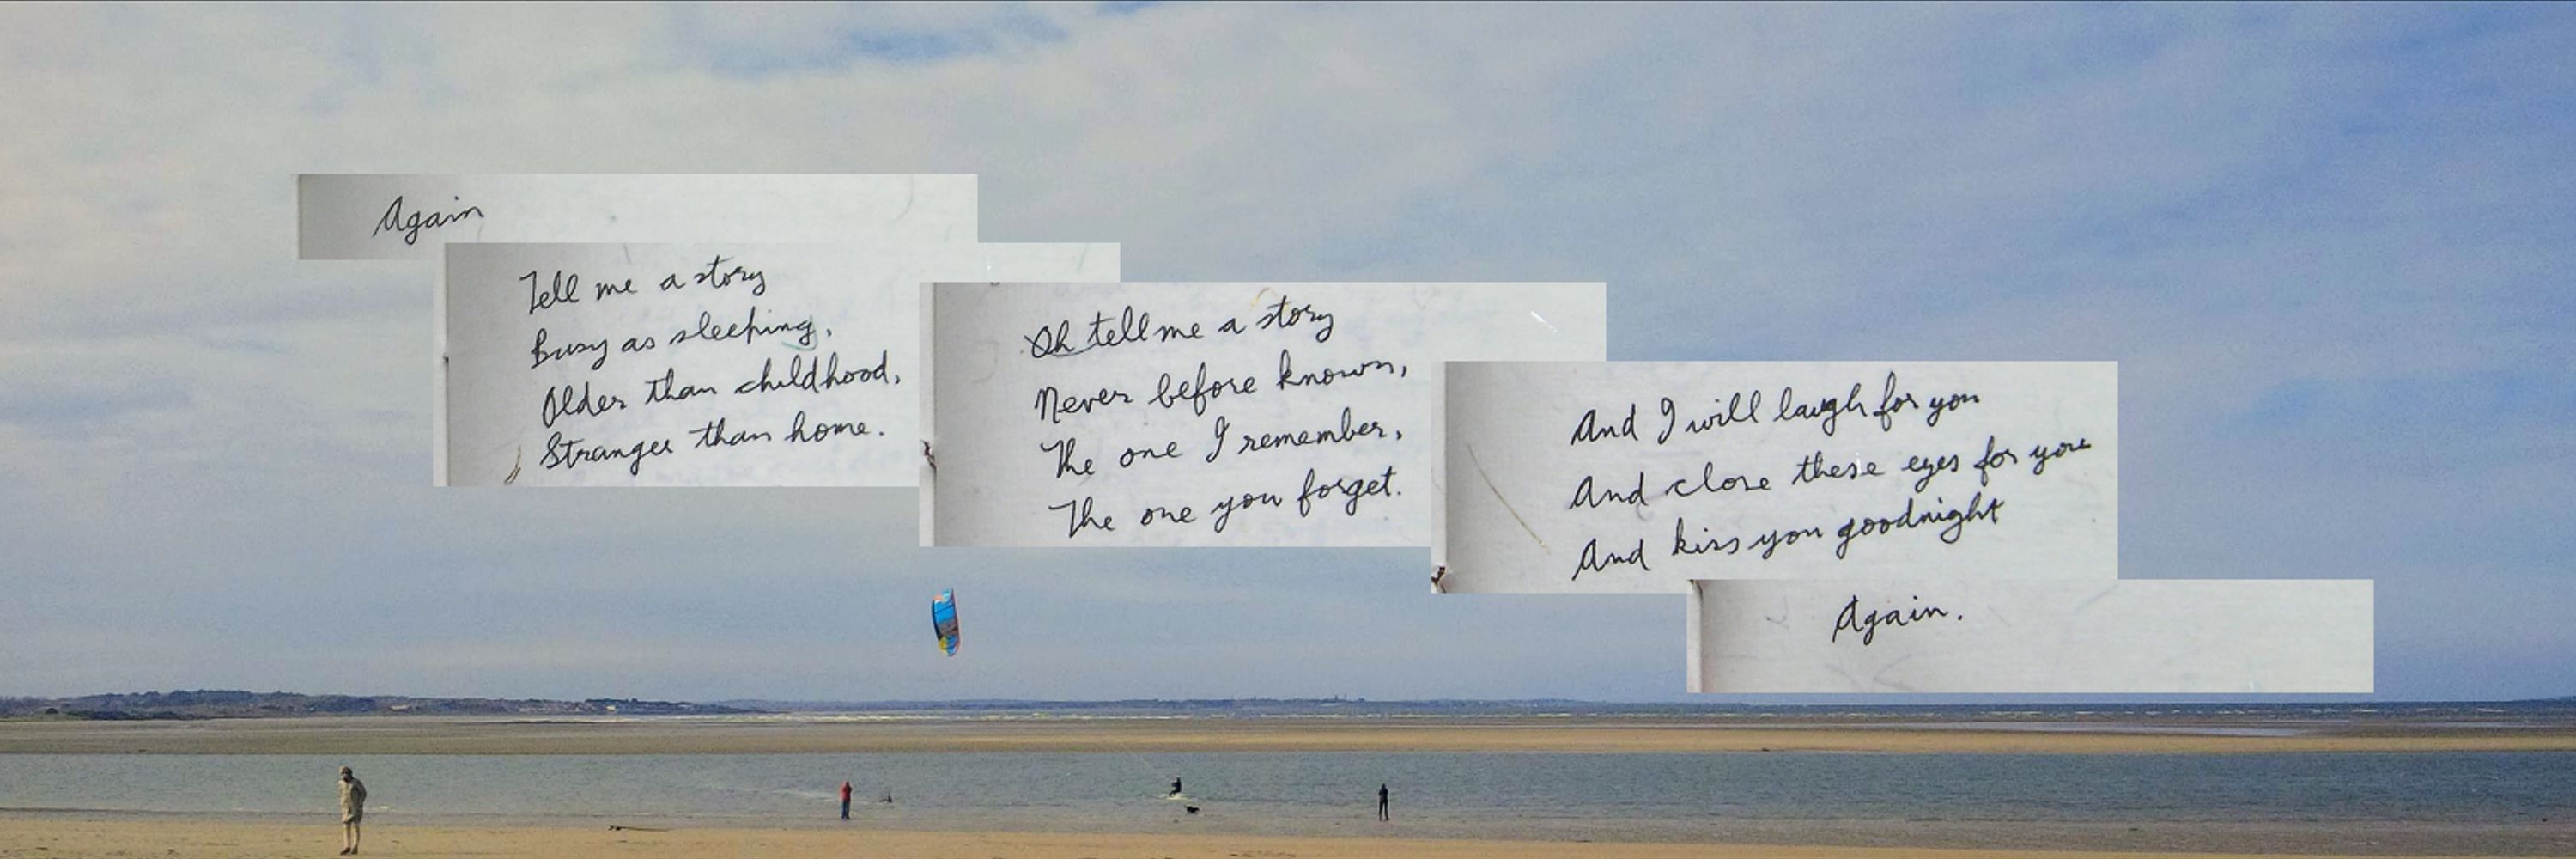 Again
Tell me a story
Busy as sleeping,
Older than childhood,
Stranger than home.
Oh tell me a story
Never before known,
The one I remember,
The one you forget.
And I will laugh for you
And close these eyes for you
And kiss you goodnight
Again.